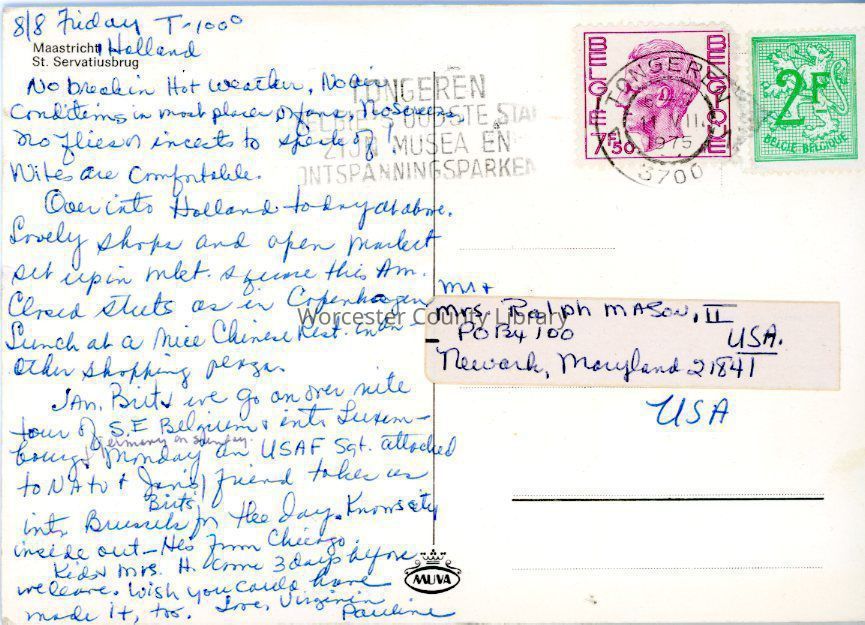 8/8 Friday T-100°
Maastricht, Holland
St. Servatiusbrug
No break in Hot weather, No air
Conditions in most places or fans, No screens,
No flies or insects to speak of!
Nites are Comfortable.
Over into Holland today at above.
Lovely shops and open market
set up in mkt. square this Am.
Closed streets as in Copenhagen
Lunch at a nice Chinese Rest. in an
other shopping
JAn, Brits & we go on over nite
tour of S.E Belgium & into Luxem-
bourg & Germany on Sunday.
Monday an USAF Sgt. attached
to NATO & Jan's/Brits friend takes us
into Brussels for the day. Knows city
inside out - He's from Chicago.
Kids & Mrs. H. come 3 days before
we leave. Wish you could have
made it, too. Love, Virginia
Pauline
TONGEREN
OUDSTE STA
ZIJN MUSEA EN
ONTSPANNINGSPARKEN
BELGIE BELGIQUE
7F50
TONGEREN
1975
3700
2F
BELGIE BELGIQUE
Mr +
Mrs. Ralph MASON, II
PO Bx 100
USA.
Newark, Maryland 21841
USA
MUVA
Worcester County Library